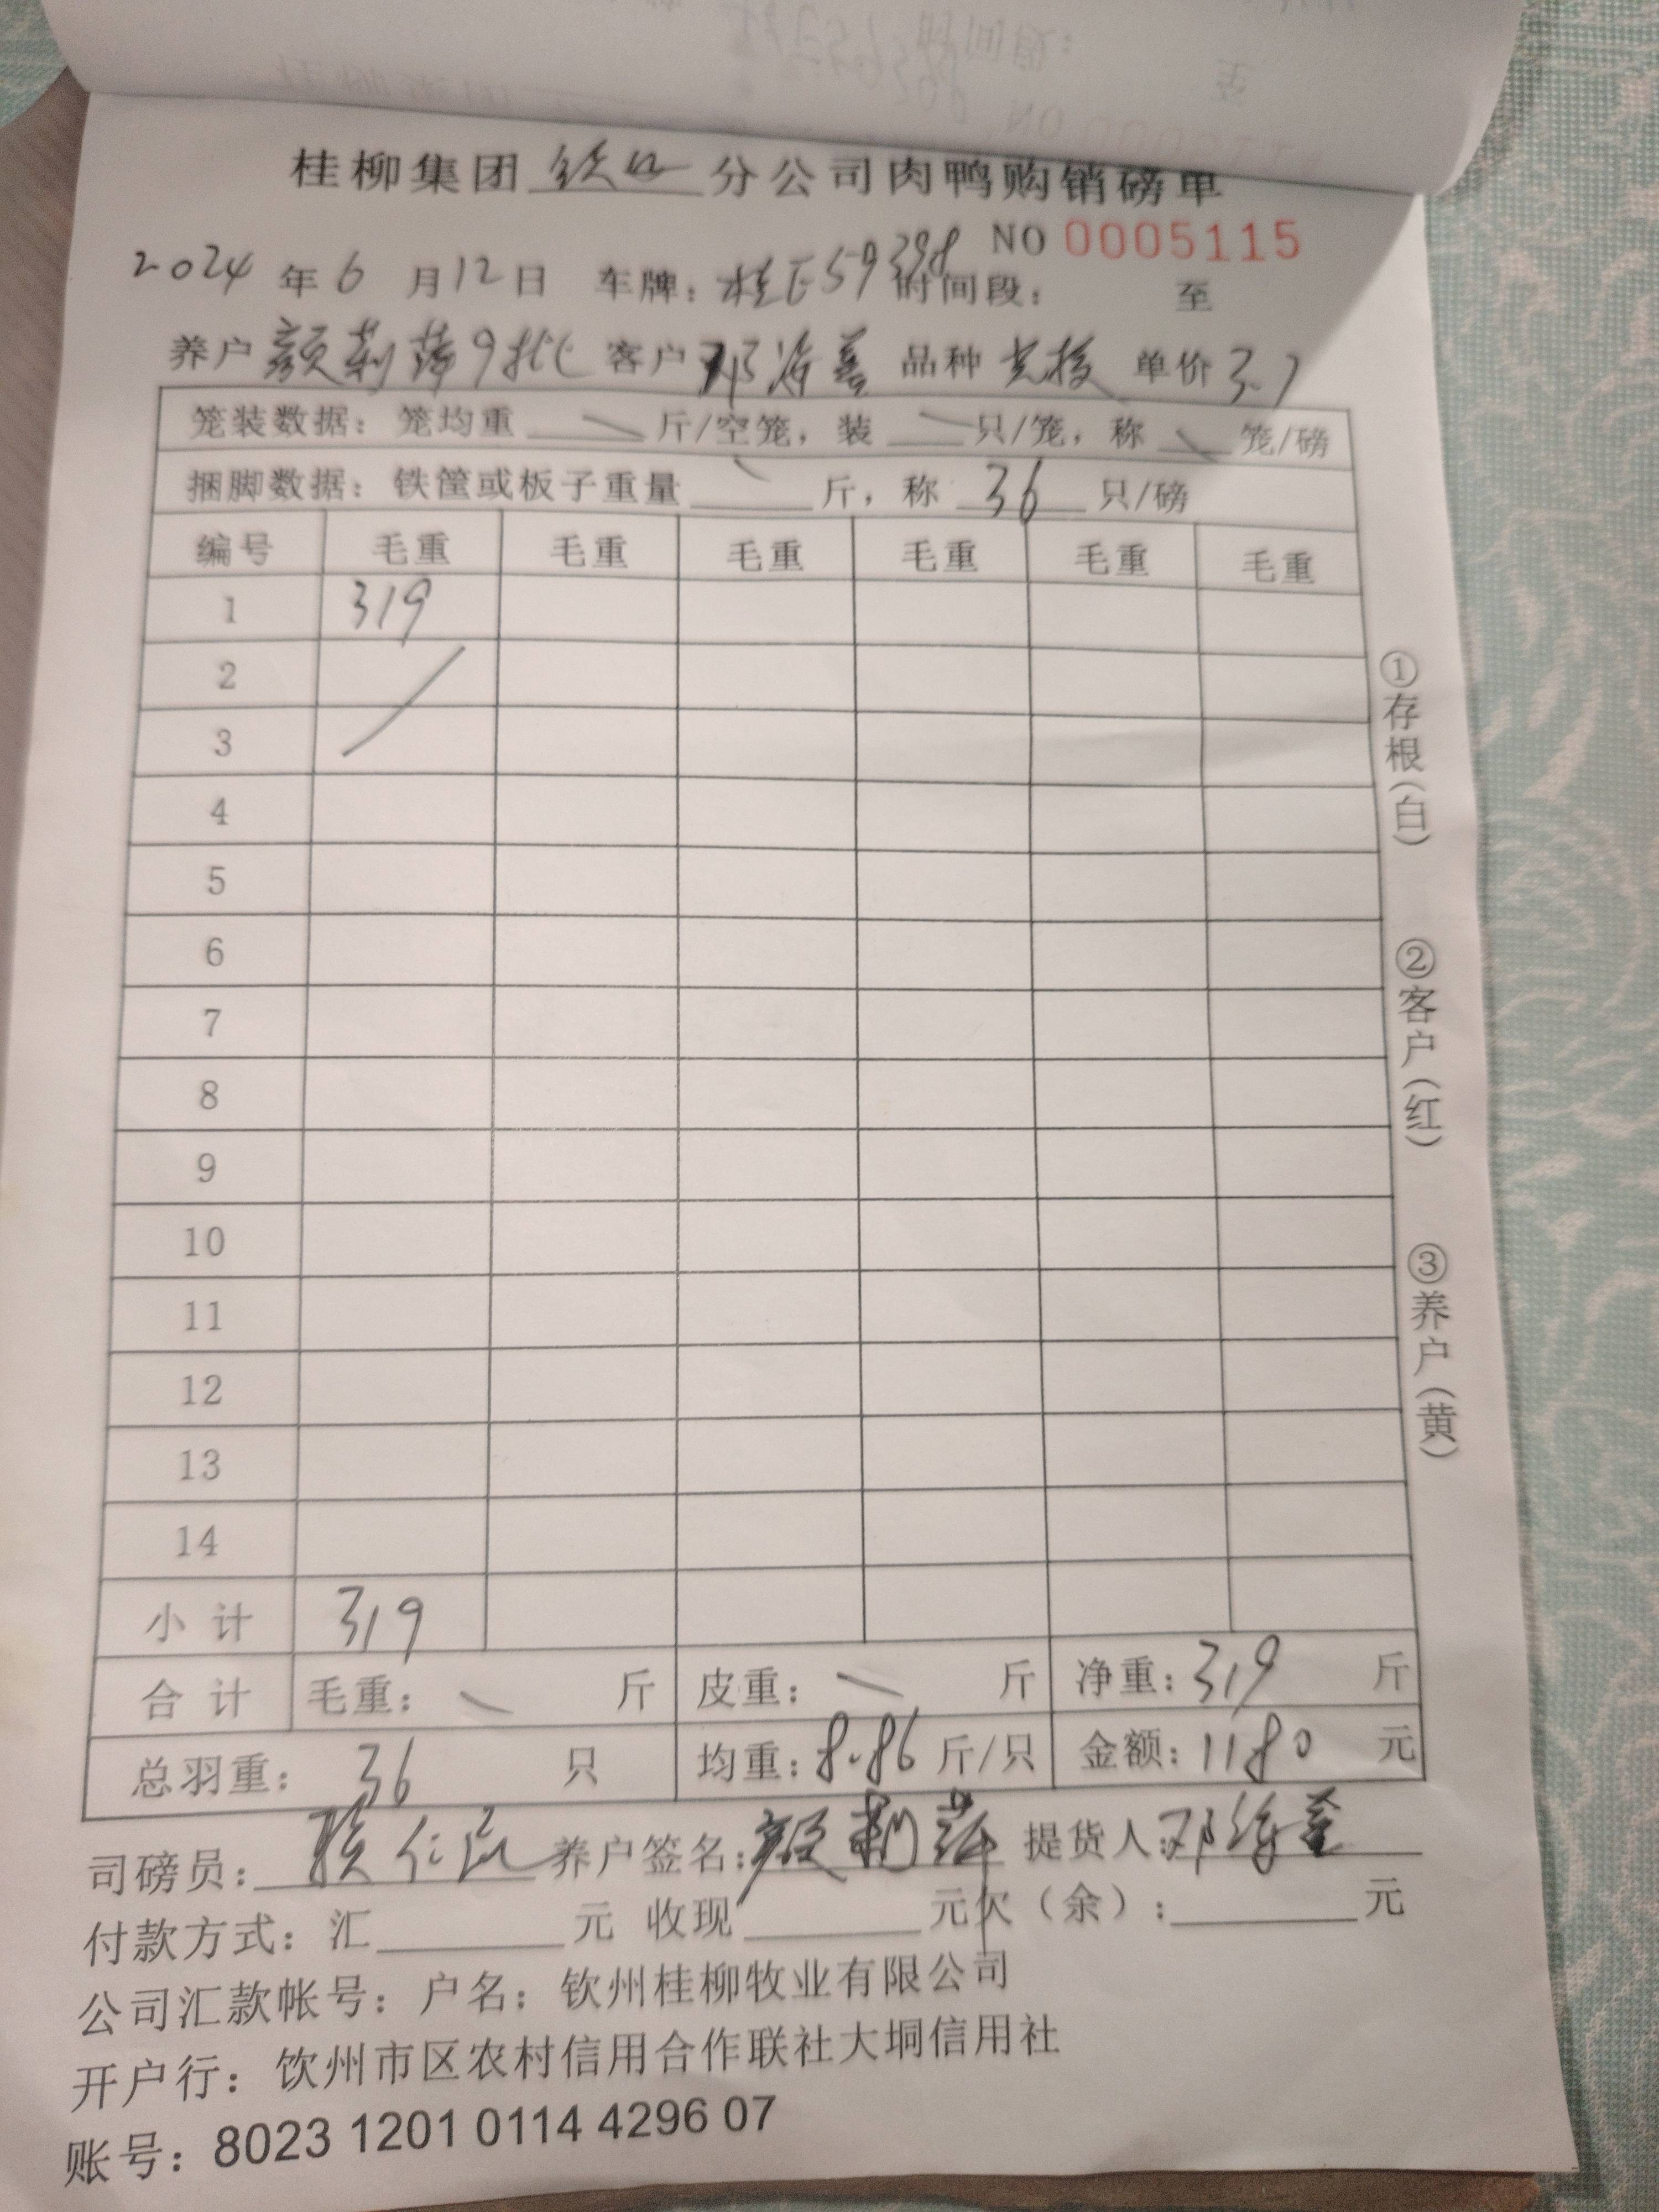 桂柳集团 分公司肉鸭购销磅单
NO 0005115
2024 年 6 月 12 日 车牌：桂E59398 时间段： 至
养户 颜莉萍9批 客户 邓 品种 单价 3.7
笼装数据：笼均重 斤/空笼，装 只/笼，称 笼/磅
捆脚数据：铁筐或板子重量 斤，称 36 只/磅
编号 毛重 毛重 毛重 毛重 毛重 毛重
1 319
2
3
4
5
6
7
8
9
10
11
12
13
14
小计 319
合计 毛重： 斤 皮重： 斤 净重：319 斤
总羽重：36 只 均重：8.86 斤/只 金额：1180 元
司磅员： 养户签名：颜莉萍 提货人：邓
付款方式：汇 元 收现 元欠（余）： 元
公司汇款帐号：户名：钦州桂柳牧业有限公司
开户行：饮州市区农村信用合作联社大垌信用社
账号：8023 1201 0114 4296 07
①存根（白）
②客户（红）
③养户（黄）